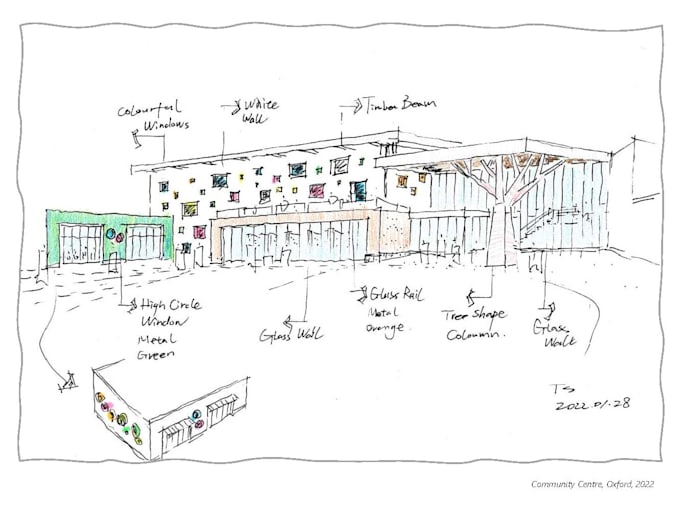 Colourful
Windows
White
Wall
Timber Beam
High Circle
Window
Metal
Green
Glass Wall
Glass Rail
Metal
Orange.
Tree Shape
Coloumn.
Glass
Walk
TS
2022.01.28
Community Centre, Oxford, 2022